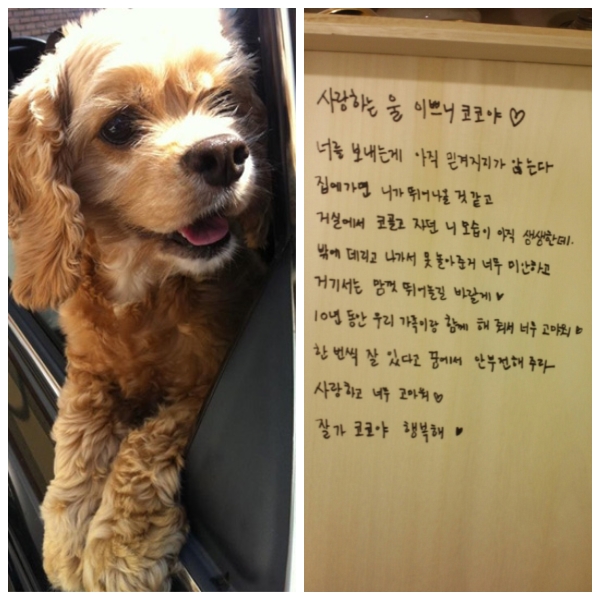 사랑하는 울 이쁘니 코코야 ♡
너를 보내는게 아직 믿겨지지가 않는다
집에가면 니가 뛰어나올 것 같고
거실에서 코골고 자던 니 모습이 아직 생생한데.
밖에 데리고 나가서 못 놀아준거 너무 미안하고
거기서는 맘껏 뛰어놀길 바랄게 ♥
10년 동안 우리 가족이랑 함께 해 줘서 너무 고마워 ♡
한 번씩 잘 있다고 꿈에서 안부전해 주라
사랑하고 너무 고마워 ♡
잘가 코코야 행복해 ♥